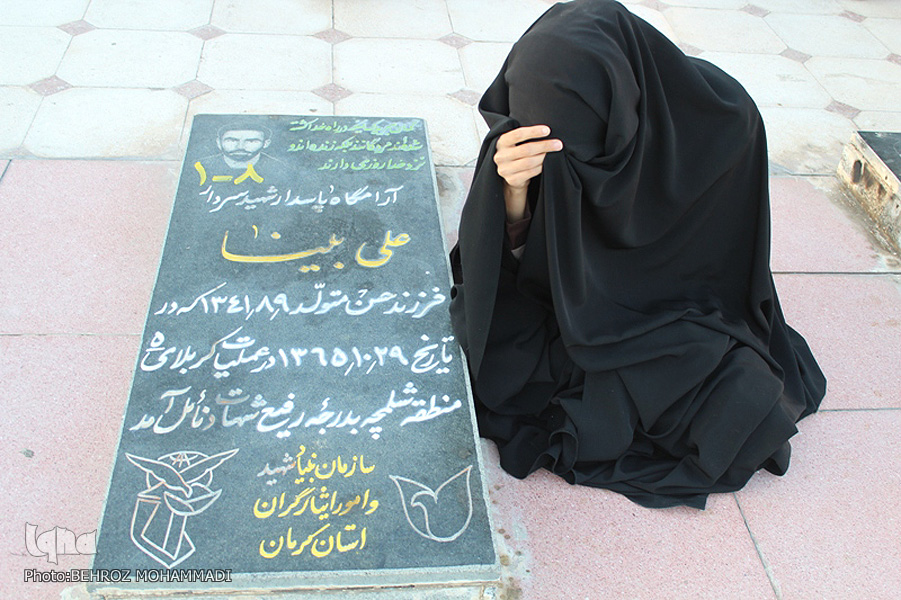 در راه خدا کشته
شده‌اند مرده‌اند بلکه زنده‌اند و
نزد خدا روزی دارند
۱-۸
آرامگاه پاسدار شهید سردار
علی بینا
فرزند حسن متولد ۱۳۴۱٫۸٫۹ که در
تاریخ ۱۳۶۵٫۱۰٫۲۹ در عملیات کربلای ۵
منطقه شلمچه بدرجه رفیع شهادت نائل آمد
سازمان بنیاد شهید
و امور ایثارگران
استان کرمان
iqna
Photo:BEHROZ MOHAMMADI